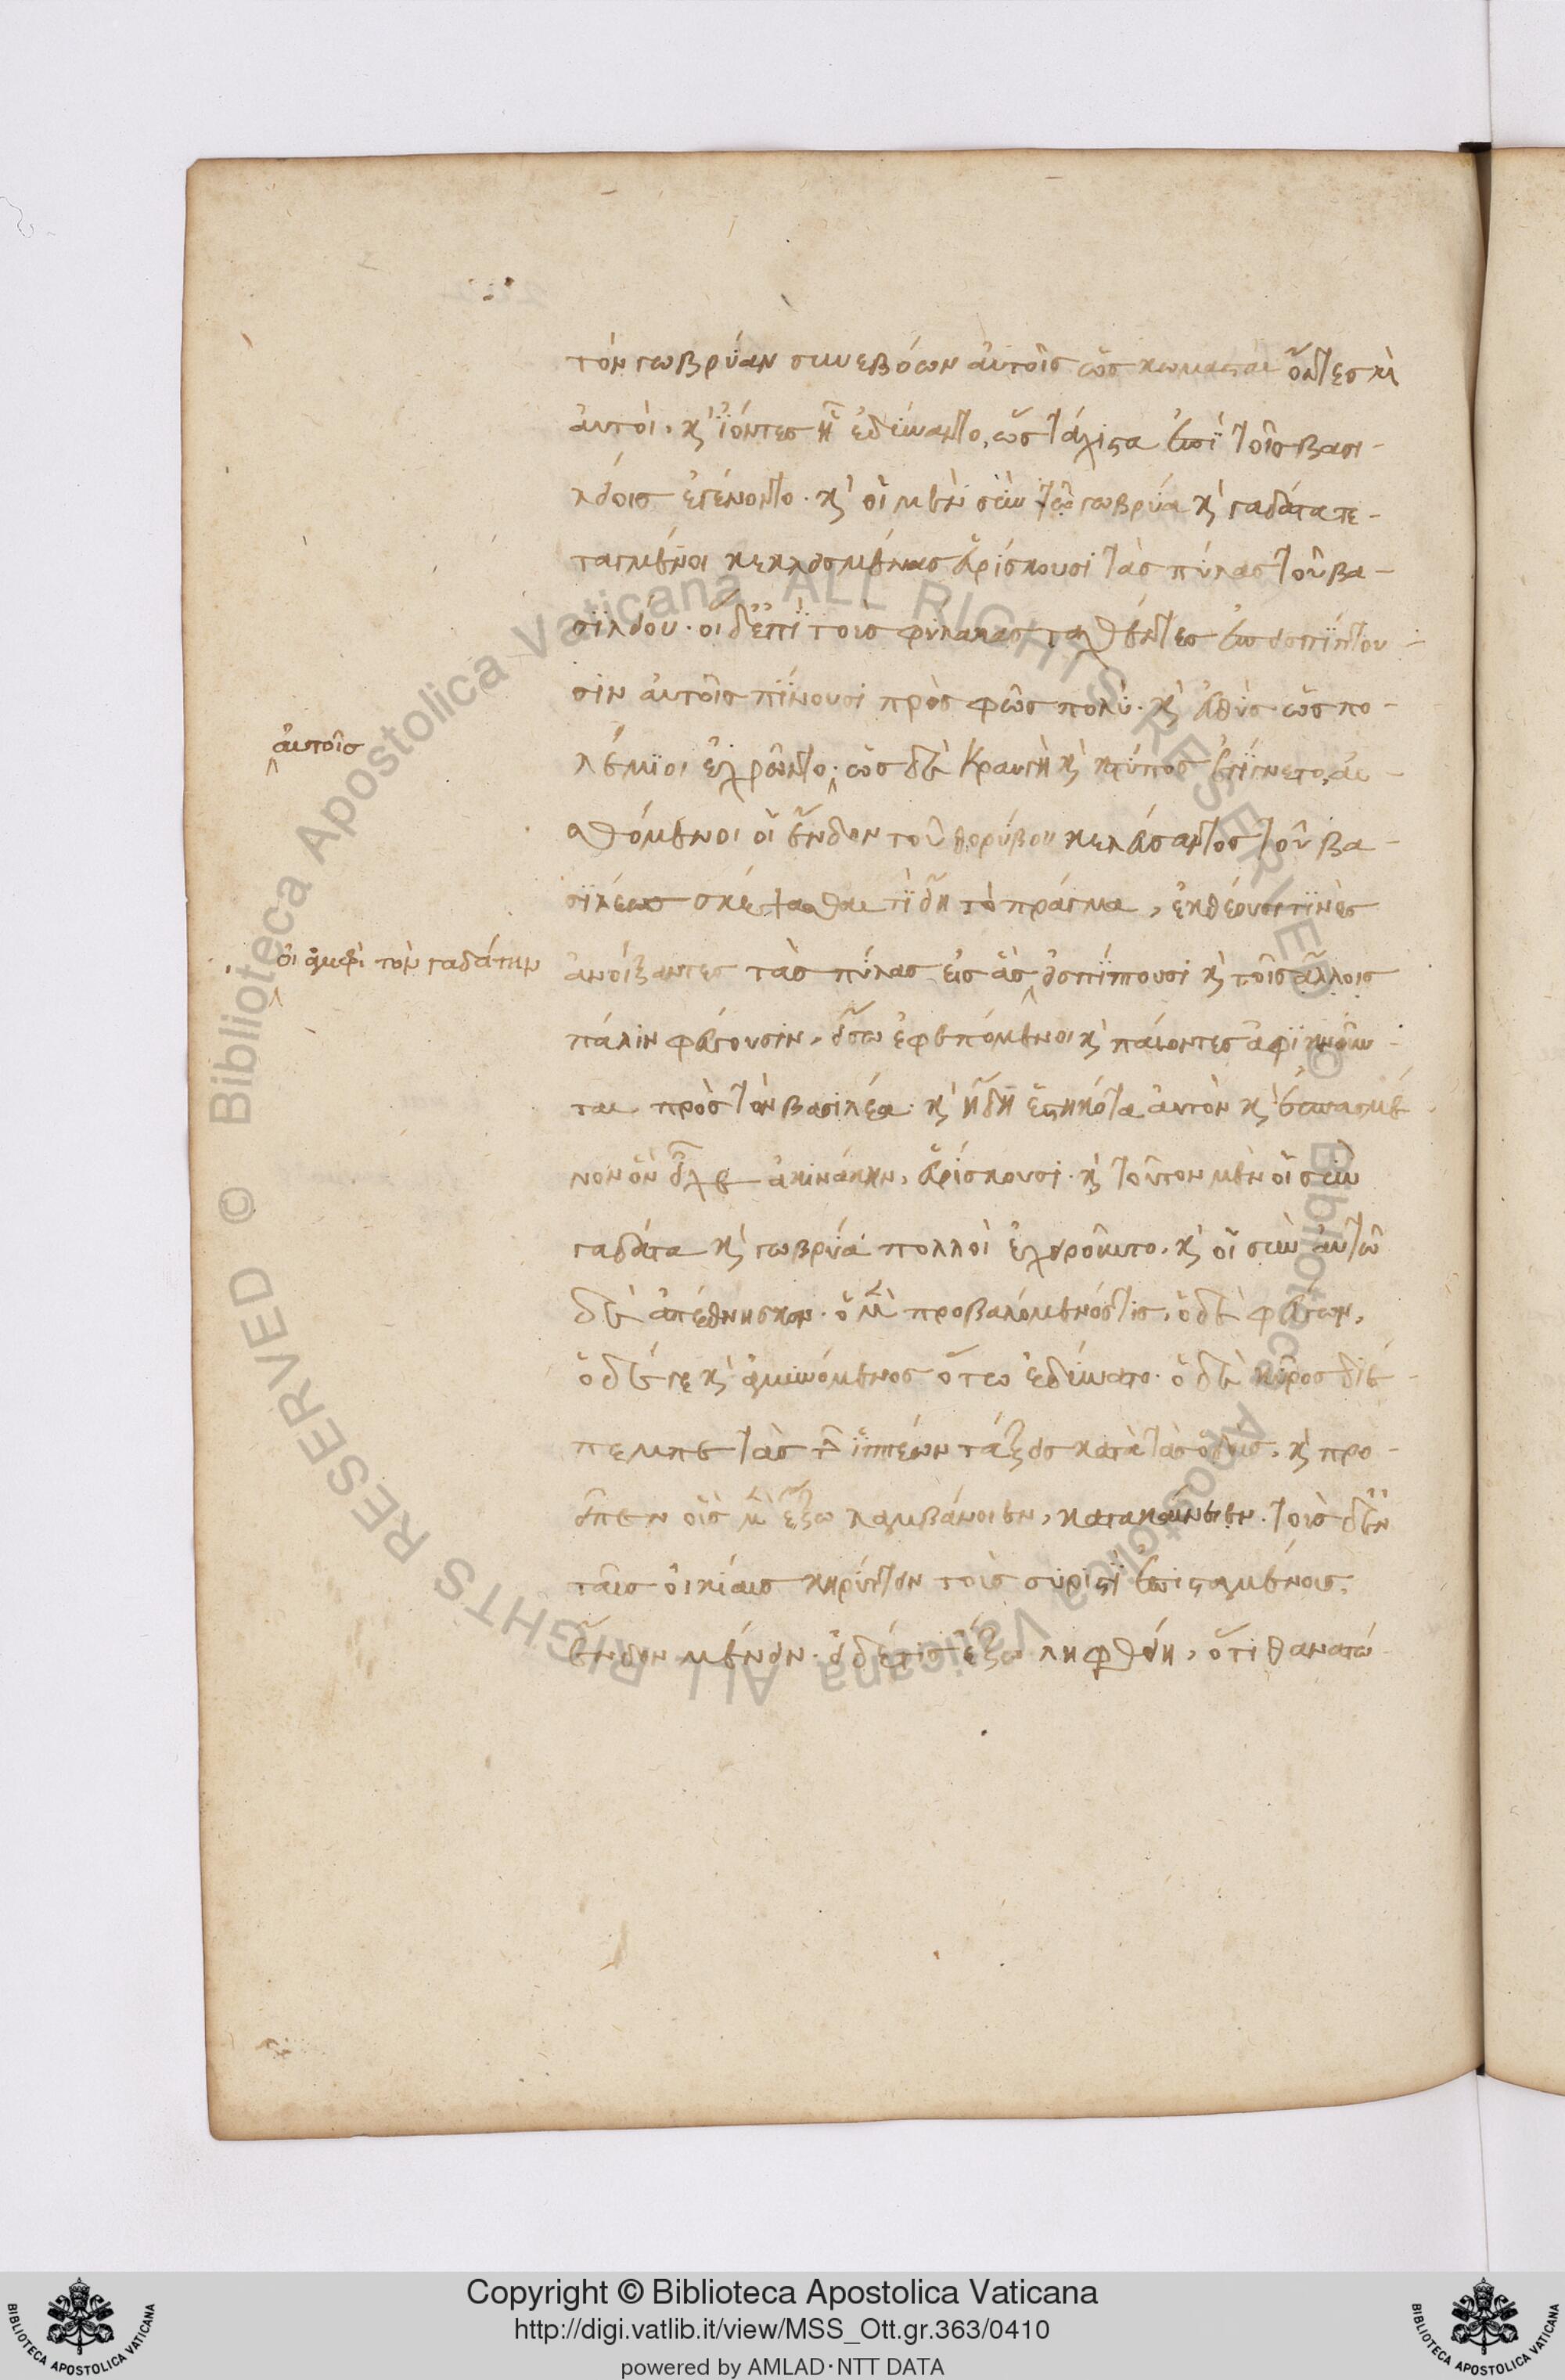 τὸν γωβρύαν συνεβόων αὐτοῖς ὡς κωμασταὶ ὄντες καὶ
αὐτοί. καὶ ἰόντες ᾗ ἐδύναντο, ὡς τάχιστα ἐπὶ τοῖς βασι-
λείοις ἐγένοντο. καὶ οἱ μὲν σὺν τῶ γωβρύα καὶ γαδάτα τε-
ταγμένοι κεκλεισμένας εὑρίσκουσι τὰς πύλας τοῦ βα-
σιλείου. οἱ δὲ ἐπὶ τοὺς φύλακας ταχθέντες ἐπεισπίπτου-
σιν αὐτοῖς πίνουσι πρὸς φῶς πολύ. καὶ εὐθὺς ὡς πο-
αὐτοῖς
λεμίοι ἐχρῶντο. ὡς δὲ κραυγὴ καὶ κτύπος ἐγίγνετο, αἰ-
σθόμενοι οἱ ἔνδον τοῦ θορύβου κελεύσαντος τοῦ βα-
σιλέως σκέψασθαι τί εἴη τὸ πράγμα, ἐκθέουσι τινὲς
οἱ ἀμφὶ τὸν γαδάτην
ἀνοίξαντες τὰς πύλας εἰς ἃς εἰσπίπτουσι καὶ τοῖς ἄλλοις
πάλιν φεύγουσιν. εἴσω ἐφεπόμενοι καὶ παίοντες ἀφικνοῦν-
ται πρὸς τὸν βασιλέα. καὶ ἤδη ἑστηκότα αὐτὸν καὶ ἐσπασμέ-
νον ὃν εἶχε ἀκινάκην, εὑρίσκουσι. καὶ τοῦτον μὲν οἱ σὺν
γαδάτα καὶ γωβρύα πολλοὶ ἐχειροῦντο. καὶ οἱ σὺν αὐτῶ
δὲ ἀπέθνησκον. ὁ μὲν προβαλόμενός τις, ὁ δὲ φεύγων,
ὁ δέ γε καὶ ἀμυνόμενος ὅτω ἐδύνατο. ὁ δὲ κῦρος διέ-
πεμπε τὰς τῶν ἱππέων τάξεις κατὰ τὰς ὁδοὺς. καὶ προ-
εῖπεν οὓς μὲν ἔξω λαμβάνοιεν, κατακαίνειν. τοὺς δὲ ἐν
ταῖς οἰκίαις κηρύττειν τοὺς συριστὶ ἐπισταμένους.
ἔνδον μένειν. εἰ δέ τις ἔξω ληφθείη, ὅτι θανατώ
Copyright © Biblioteca Apostolica Vaticana
http://digi.vatlib.it/view/MSS_Ott.gr.363/0410
powered by AMLAD·NTT DATA